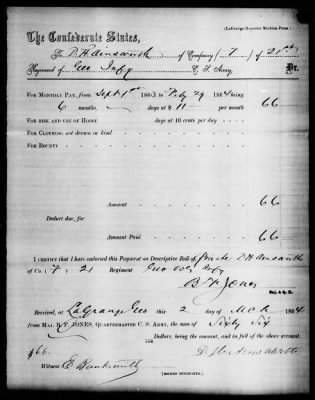 (LaGrange Reporter Machine Press.)
The Confederate States,
To D. H. Ainsworth of Company (7) of 21st
Regiment of Geo Infy C. S. Army, Dr.
For Monthly Pay, from Sept 1st 1863 to Feby 29 1864 being
6 months, days at $ 11 per month 66
For risk and use of Horse days at 40 cents per day
For Clothing not drawn in kind
For Bounty
Amount 66
Deduct due, for
Amount Paid 66
I certify that I have endorsed this Payment on Descriptive Roll of Private D H Ainsworth
of Co. (7) 21 Regiment Geo Infy
B F Jones
Maj. & Q. M.
Received, at LaGrange Geo this 2 day of Mch 1864
from Maj. B. F. JONES, Quartermaster C. S. Army, the sum of Sixty Six
Dollars, being the amount, and in full of the above account.
$66. D H Ainsworth
Witness E Banksmith
(SIGNED DUPLICATES.)